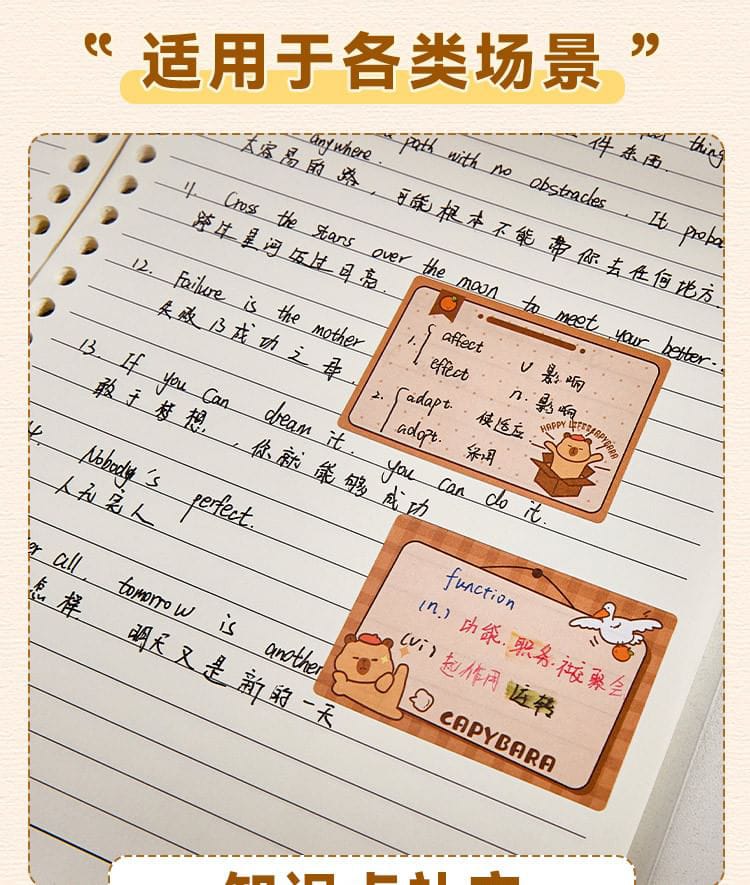 “ 适用于各类场景 ”
anywhere. path with no obstacles. It proba
太容易的路，可能根本不能带你去任何地方.
件东西.
thing
11. Cross the stars over the moon to meet your better...
跨过星河迈过月亮.
12. Failure is the mother
失败乃成功之母.
13. If you can dream it. you can do it.
敢于梦想，你就能够成功
Nobody's perfect.
人无完人
all. tomorrow is another
怎样 明天又是新的一天
1. affect v 影响
effect n. 影响
2. adapt. 使适应
adopt. 采用
HAPPY LIFE&CAPYBARA
function
(n.) 功能. 职务. 社交聚会
(vi) 起作用 运转
CAPYBARA
知识点补充